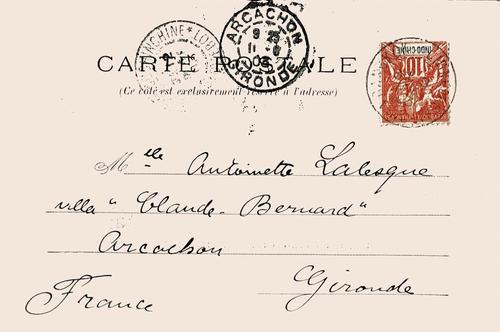 COCHINCHINE * LOU
ARCACHON
9 25
11 - 6
03
GIRONDE
INDO-CHINE
10
CARTE POSTALE
(Ce côté est exclusivement réservé à l'adresse)
Mlle Antoinette Lalesque
villa "Claude-Bernard"
Arcachon
Gironde
France